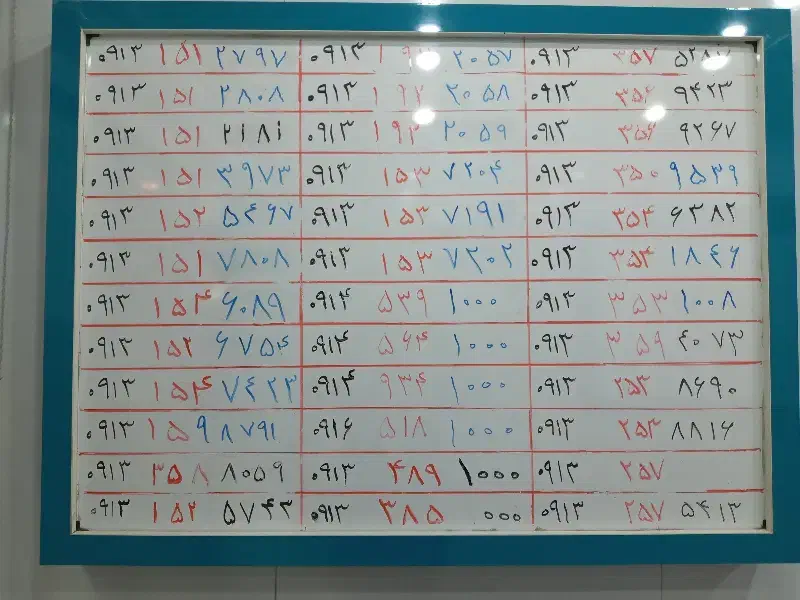 ۰۹۱۳ ۱۵۱ ۲۷۹۷ ۰۹۱۳ ۲۰۵۷ ۰۹۱۳ ۳۵۷
۰۹۱۳ ۱۵۱ ۲۸۰۸ ۰۹۱۳ ۱۹۲ ۲۰۵۸ ۰۹۱۳ ۳۵۲ ۹۴۲۳
۰۹۱۳ ۱۵۱ ۲۱۸۱ ۰۹۱۳ ۱۹۲ ۲۰۵۹ ۰۹۱۳ ۳۵۶ ۹۲۶۷
۰۹۱۳ ۱۵۱ ۳۹۷۳ ۰۹۱۳ ۱۵۳ ۷۲۰۴ ۰۹۱۳ ۳۵۰ ۹۵۳۹
۰۹۱۳ ۱۵۲ ۵۴۶۷ ۰۹۱۳ ۱۵۳ ۷۱۹۱ ۰۹۱۳ ۳۵۴ ۶۳۸۲
۰۹۱۳ ۱۵۱ ۷۸۰۸ ۰۹۱۳ ۱۵۳ ۷۲۰۲ ۰۹۱۳ ۳۵۴ ۱۸۴۶
۰۹۱۳ ۱۵۴ ۶۰۸۹ ۰۹۱۴ ۵۳۹ ۱۰۰۰ ۰۹۱۳ ۳۵۳ ۱۰۰۸
۰۹۱۳ ۱۵۲ ۶۷۵۴ ۰۹۱۴ ۵۶۴ ۱۰۰۰ ۰۹۱۳ ۳۵۹ ۴۰۷۳
۰۹۱۳ ۱۵۴ ۷۴۲۳ ۰۹۱۴ ۹۳۴ ۱۰۰۰ ۰۹۱۳ ۲۵۳ ۸۶۹۰
۰۹۱۳ ۱۵۹ ۸۷۹۱ ۰۹۱۶ ۵۱۸ ۱۰۰۰ ۰۹۱۳ ۲۵۳ ۸۸۱۶
۰۹۱۳ ۳۵۸ ۸۰۵۹ ۰۹۱۳ ۴۸۹ ۱۰۰۰ ۰۹۱۳ ۲۵۷
۰۹۱۳ ۱۵۲ ۵۷۴۳ ۰۹۱۳ ۳۸۵ ۰۰۰ ۰۹۱۳ ۲۵۷ ۵۴۱۳